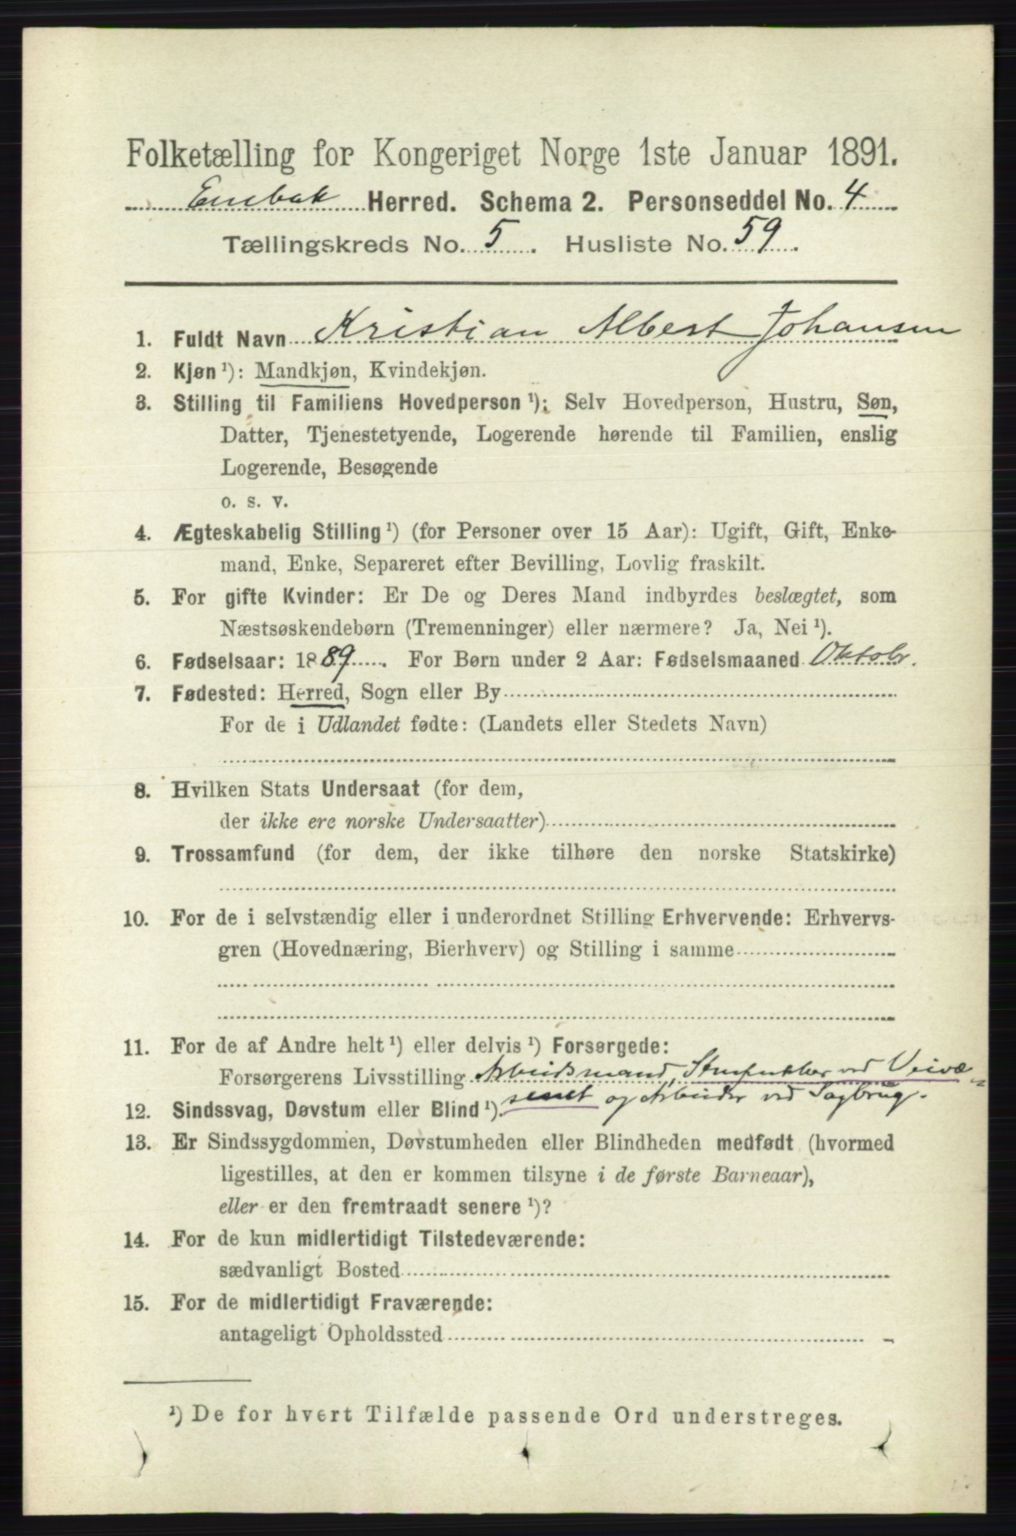 Folketælling for Kongeriget Norge 1ste Januar 1891.
Enebak Herred. Schema 2. Personseddel No. 4
Tællingskreds No. 5. Husliste No. 59.
1. Fuldt Navn Kristian Albert Johansen
2. Kjøn ¹): Mandkjøn, Kvindekjøn.
3. Stilling til Familiens Hovedperson ¹): Selv Hovedperson, Hustru, Søn,
Datter, Tjenestetyende, Logerende hørende til Familien, enslig
Logerende, Besøgende
o. s. v.
4. Ægteskabelig Stilling ¹) (for Personer over 15 Aar): Ugift, Gift, Enke-
mand, Enke, Separeret efter Bevilling, Lovlig fraskilt.
5. For gifte Kvinder: Er De og Deres Mand indbyrdes beslægtet, som
Næstsøskendebørn (Tremenninger) eller nærmere? Ja, Nei ¹).
6. Fødselsaar: 1889. For Børn under 2 Aar: Fødselsmaaned Oktobr.
7. Fødested: Herred, Sogn eller By
For de i Udlandet fødte: (Landets eller Stedets Navn)
8. Hvilken Stats Undersaat (for dem,
der ikke ere norske Undersaatter)
9. Trossamfund (for dem, der ikke tilhøre den norske Statskirke)
10. For de i selvstændig eller i underordnet Stilling Erhvervende: Erhvervs-
gren (Hovednæring, Bierhverv) og Stilling i samme
11. For de af Andre helt ¹) eller delvis ¹) Forsørgede:
Forsørgerens Livsstilling Arbeidsmand, ved Veivæ=
senet og Arbeider ved Sagbrug.
12. Sindssvag, Døvstum eller Blind ¹).
13. Er Sindssygdommen, Døvstumheden eller Blindheden medfødt (hvormed
ligestilles, at den er kommen tilsyne i de første Barneaar),
eller er den fremtraadt senere ¹)?
14. For de kun midlertidigt Tilstedeværende:
sædvanligt Bosted
15. For de midlertidigt Fraværende:
antageligt Opholdssted
¹) De for hvert Tilfælde passende Ord understreges.